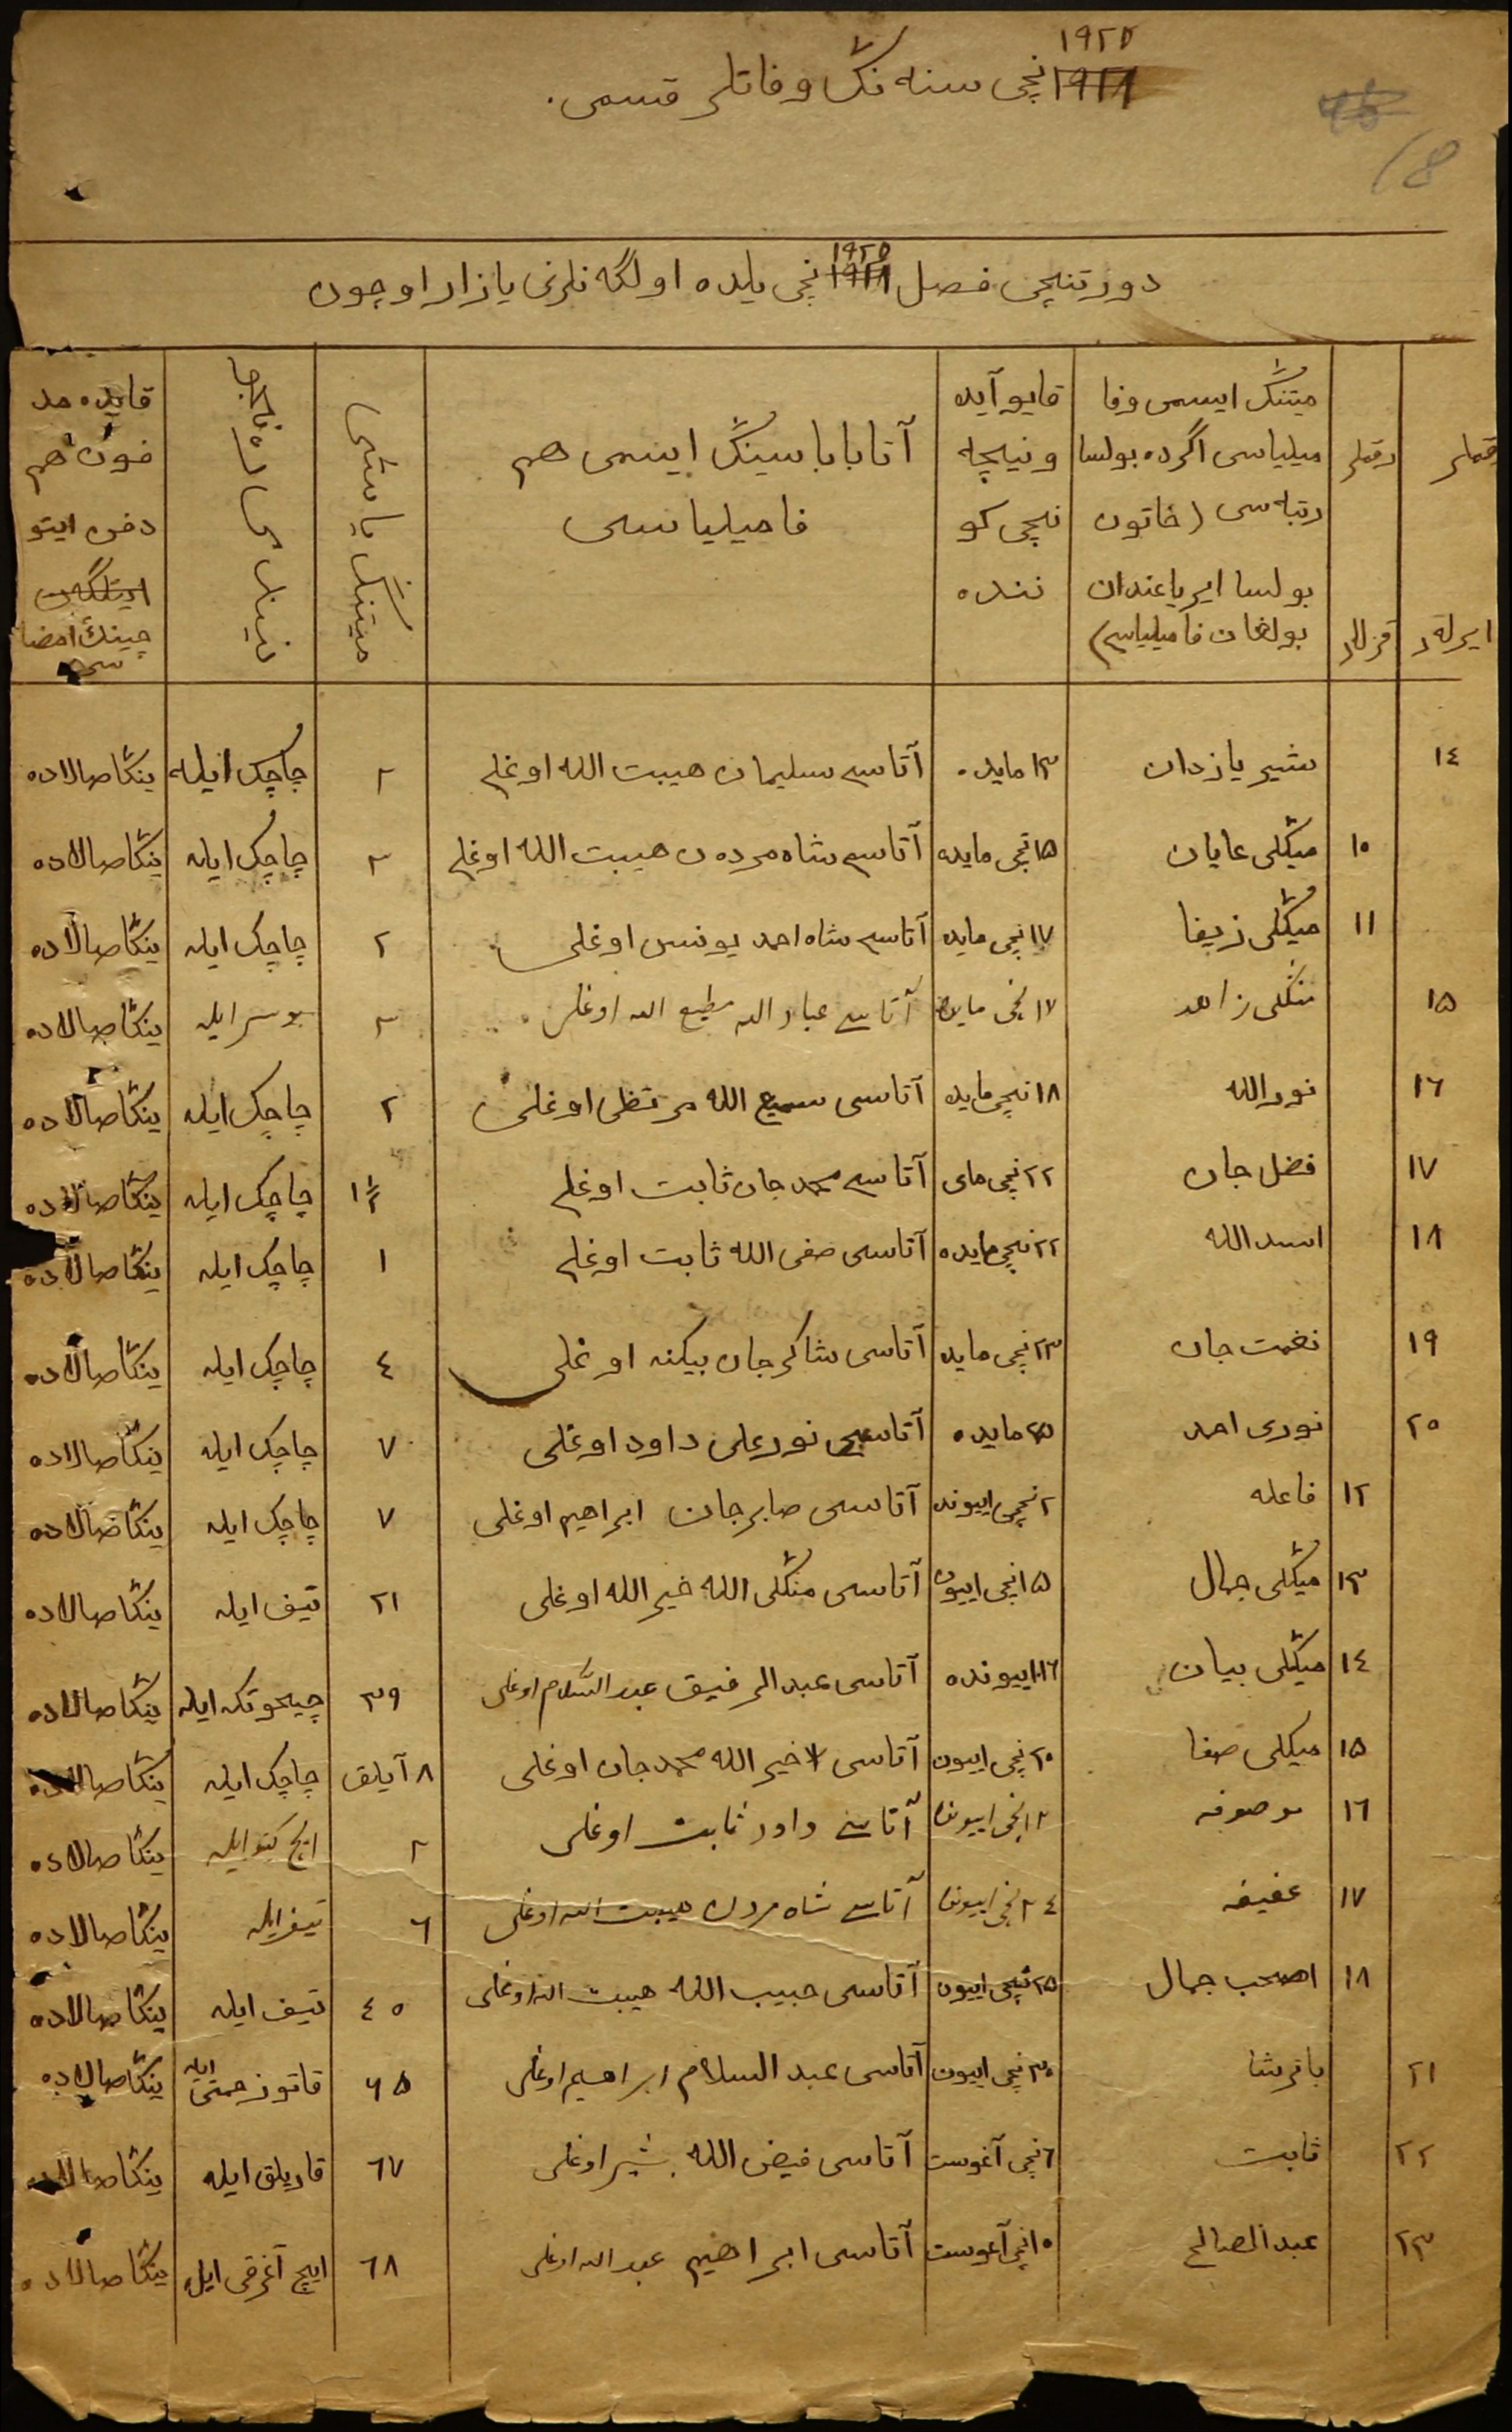 ١٩٢٥
١٩٢١ نچی سنه نڭ وفاتلر قسمی.
18
دورتنچی فصل ١٩٢١ ١٩٢٥ نچی یلده اولگه نلرنی یازار اوچون
رقملر ایرلەر
رقملر قزلار
میتنڭ ایسمی وفا میلیاسی اگرده بولسا رتبه سی (خاتون بولسا ایر یاغندان بولغان فامیلیاسی)
قایو آیده و نیچه نچی کو ننده
آتا باباسینڭ ایسمی هم فامیلیاسی
میتنڭ یاشی
قایده مد فون هم دفن ایتو چینڭ امضا سی
١٤ شیر یازدان ١٣ مایده. آتاسی سلیمان هیبت الله اوغلی ٢ چاچک ایله ینکا صالاده
١٠ میڭلی عایان ١٥ نچی مایده آتاسی شاه مردن هیبت الله اوغلی ٣ چاچک ایله ینکا صالاده
١١ میڭلی زیفا ١٧ نچی مایده آتاسی شاه احمد یونس اوغلی ٢ چاچک ایله ینکا صالاده
١٥ منڭلی زاهد ١٧ نچی مایده آتاسی عباد الله مطیع الله اوغلی ٣ بوسر ایله ینکا صالاده
١٦ نورالله ١٨ نچی مایده آتاسی سمیع الله مرتظی اوغلی ٢ چاچک ایله ینکا صالاده
١٧ فضل جان ٢٢ نچی مای آتاسی محمد جان ثابت اوغلی ١½ چاچک ایله ینکا صالاده
١٨ اسد الله ٢٢ نچی مایده آتاسی صفی الله ثابت اوغلی ١ چاچک ایله ینکا صالاده
١٩ نغمت جان ٢٣ نچی مایده آتاسی شاکر جان بیکنه اوغلی ٤ چاچک ایله ینکا صالاده
٢٠ نوری احمد ٢٥ مایده آتاسی نور علی داود اوغلی ٧ چاچک ایله ینکا صالاده
١٢ فاعله ٢ نچی اییونده آتاسی صابر جان ابراهیم اوغلی ٧ چاچک ایله ینکا صالاده
١٣ میڭلی جمال ١٥ نچی اییون آتاسی منڭلی الله خیر الله اوغلی ٢١ تیف ایله ینکا صالاده
١٤ میڭلی بیان ١٦ اییونده آتاسی عبد الرفیق عبد السلام اوغلی ٣٩ چیحوتکه ایله ینکا صالاده
١٥ میکلی صفا ٢٠ نچی اییون آتاسی خیر الله محمد جان اوغلی ٨ آیلق چاچک ایله ینکا صالاده
١٦ موصوفه آتاسی داود ثابت اوغلی ٢ ایچ کتو ایله ینکا صالاده
١٧ عفیفه ٢٤ نچی اییونده آتاسی شاه مردن هیبت الله اوغلی ٦ تیف ایله ینکا صالاده
١٨ اصحب جمال ٢٥ نچی اییون آتاسی حبیب الله هیبت الله اوغلی ٤٠ تیف ایله ینکا صالاده
٢١ باقرشا ٣٠ نچی اییون آتاسی عبد السلام ابراهیم اوغلی ٦٥ ایله ینکا صالاده
٢٢ ثابت ٦ نچی آغوست آتاسی فیض الله بشیر اوغلی ٦٧ قاریلق ایله ینکا صالاده
٢٣ عبد الصالح ١٠ نچی آغوست آتاسی ابراهیم عبد الله اوغلی ٦٨ ایچ آغرقی ایله ینکا صالاده